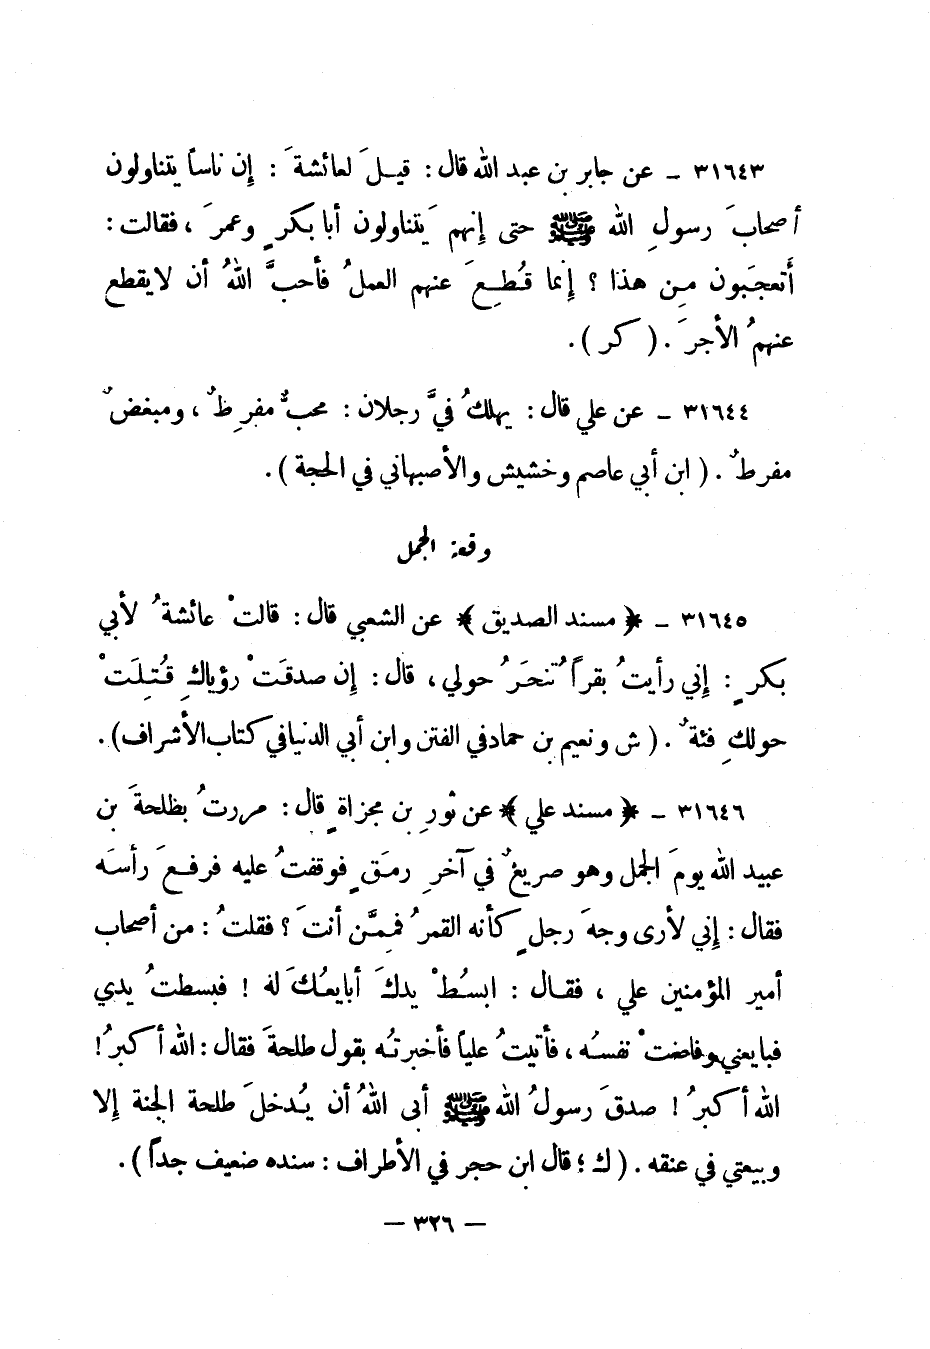 ٣١٦٤٣ ـ عن جابر بن عبد الله قال : قيلَ لعائشةَ : إن ناساً يتناولون
أصحابَ رسولِ الله ﷺ حتى إنهم يَتناولون أبا بكرٍ وعمرَ ، فقالت :
أَتعجَبون مِن هذا ؟ إنما قُطِعَ عنهم العملُ فأحبَّ اللهُ أن لا يقطع
عنهمُ الأجرَ . ( كر ) .
٣١٦٤٤ ـ عن علي قال : يهلكُ فيَّ رجلان : محبٌّ مفرِطٌ ، ومبغضٌ
مفرطٌ . ( ابن أبي عاصم وخشيش والأصبهاني في الحجة ) .
وقعة الجمل
٣١٦٤٥ ـ ﴿ مسند الصديق ﴾ عن الشعبي قال : قالتْ عائشةُ لأبي
بكرٍ : إني رأيتُ بقراً تُنحَرُ حولي ، قال : إن صدقَتْ رؤياكِ قُتِلَتْ
حولكِ فئةٌ . ( ش ونعيم بن حماد في الفتن وابن أبي الدنيا في كتاب الأشراف ) .
٣١٦٤٦ ـ ﴿ مسند علي ﴾ عن ثورِ بن مجزاةٍ قال : مررتُ بظلحةَ بن
عبيد الله يومَ الجمل وهو صريعٌ في آخرِ رمَقٍ فوقفتُ عليه فرفعَ رأسَه
فقال : إني لأرى وجهَ رجلٍ كأنه القمرُ فمِمَّن أنتَ ؟ فقلتُ : من أصحاب
أمير المؤمنين علي ، فقال : ابسُطْ يدكَ أبايعُكَ له ! فبسطتُ يدي
فبايعني وفاضتْ نفسُه ، فأتيتُ علياً فأخبرتُه بقول طلحةَ فقال : الله أكبرُ !
الله أكبرُ ! صدقَ رسولُ الله ﷺ أبى اللهُ أن يُدخلَ طلحة الجنة إلا
وبيعتي في عنقه . ( ك ؛ قال ابن حجر في الأطراف : سنده ضعيف جداً ) .
— ٣٢٦ —